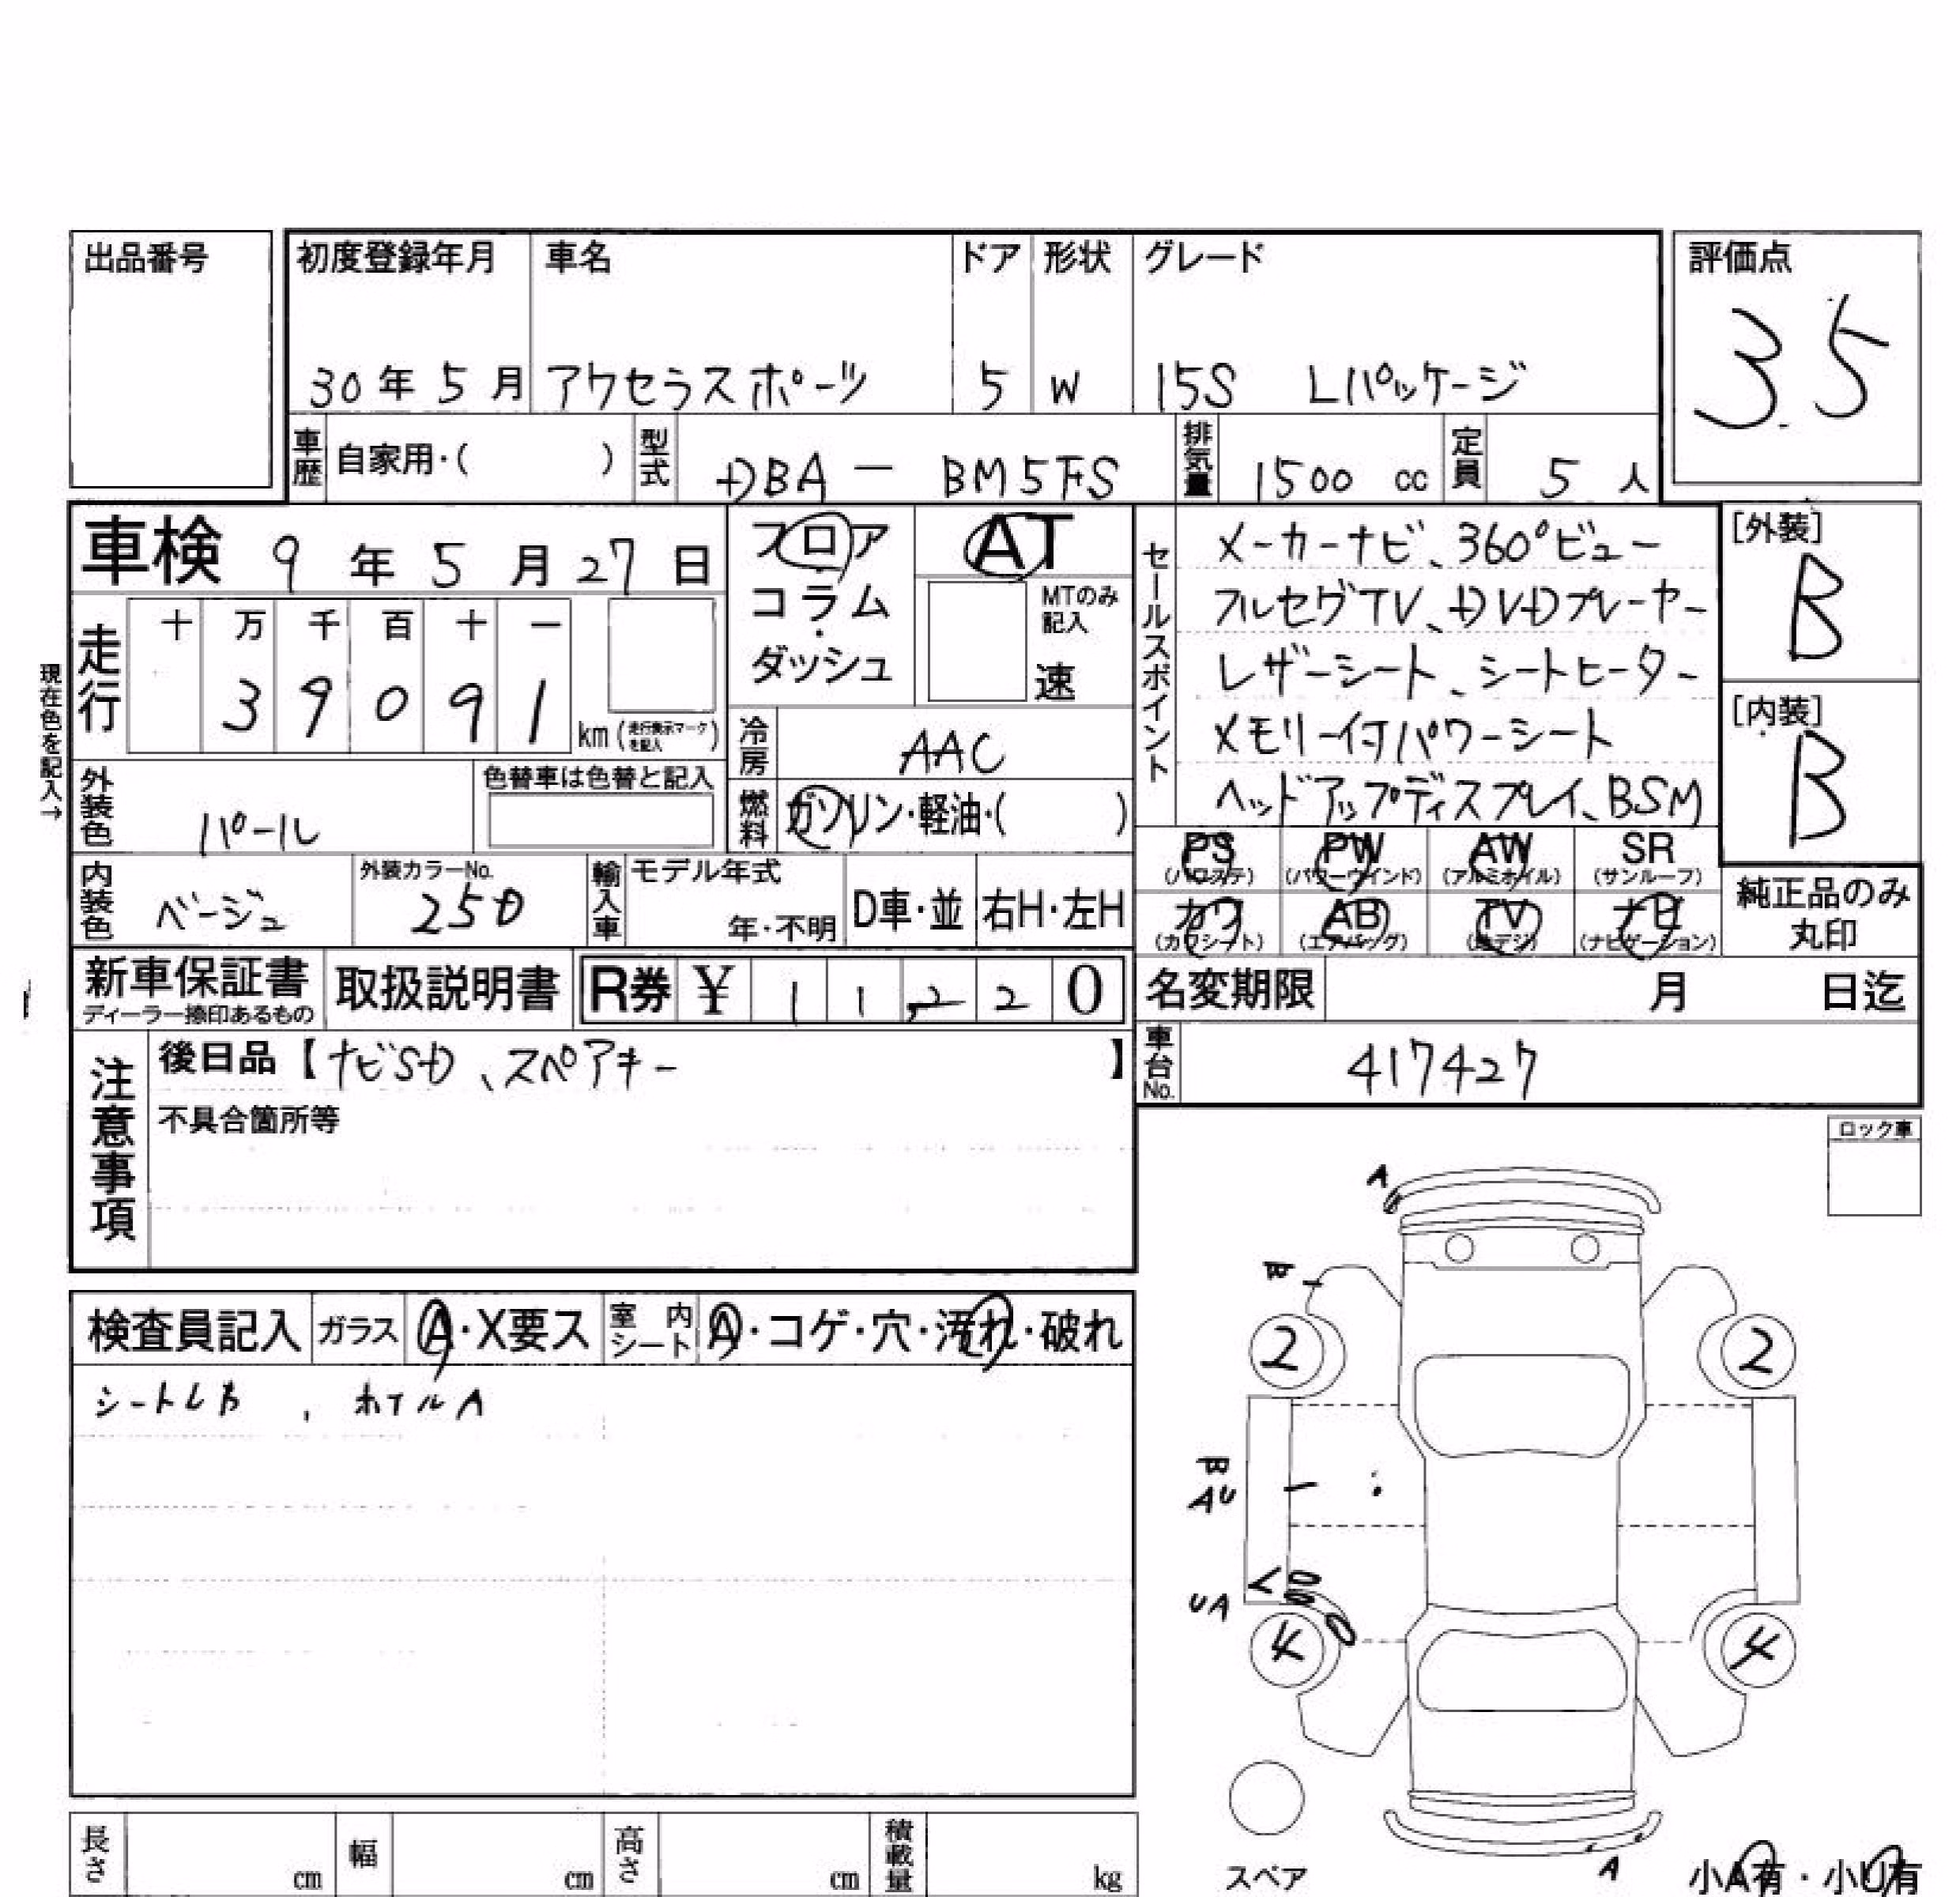 出品番号
初度登録年月 車名 ドア 形状 グレード
30年 5月 アクセラスポーツ 5 W 15S Lパッケージ
評価点
3.5
車歴 自家用・( ) 型式 DBA - BM5FS 排気量 1500 cc 定員 5 人
車検 9年 5月 27日
フロア
コラム
・
ダッシュ
AT
MTのみ
記入
速
現在色を記入→
走行 十 万 千 百 十 一
3 9 0 9 1 km (走行表示マークを記入)
冷房 AAC
燃料 ガソリン・軽油・( )
外装色 パール
色替車は色替と記入
内装色 ベージュ
外装カラーNo.
25D
輸入車 モデル年式
年・不明 D車・並 右H・左H
セールスポイント
メーカーナビ、360°ビュー
フルセグTV、DVDプレーヤー
レザーシート、シートヒーター
メモリー付パワーシート
ヘッドアップディスプレイ、BSM
[外装]
B
[内装]
B
PS PW AW SR
(パワステ) (パワーウインド) (アルミホイル) (サンルーフ)
カワ AB TV ナビ
(カワシート) (エアバッグ) (地デジ) (ナビゲーション)
純正品のみ
丸印
新車保証書
ディーラー捺印あるもの
取扱説明書
R券 ¥ 1 1,2 2 0
名変期限 月 日迄
車台No. 417427
注意事項
後日品【ナビSD、スペアキー 】
不具合箇所等
ロック車
検査員記入 ガラス A・X要ス 室内シート A・コゲ・穴・汚れ・破れ
ホイルA
A
B
2 2
B
AU
UA
4 4
A
スペア
小A有・小U有
長さ cm 幅 cm 高さ cm 積載量 kg